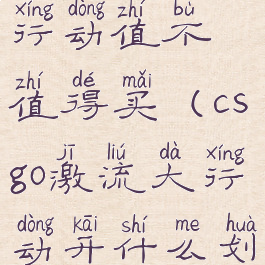 xíng dòng zhí bù
行动值不
zhí dé mǎi
值得买（cs
jī liú dà xíng
go激流大行
dòng kāi shí me huà
动开什么划